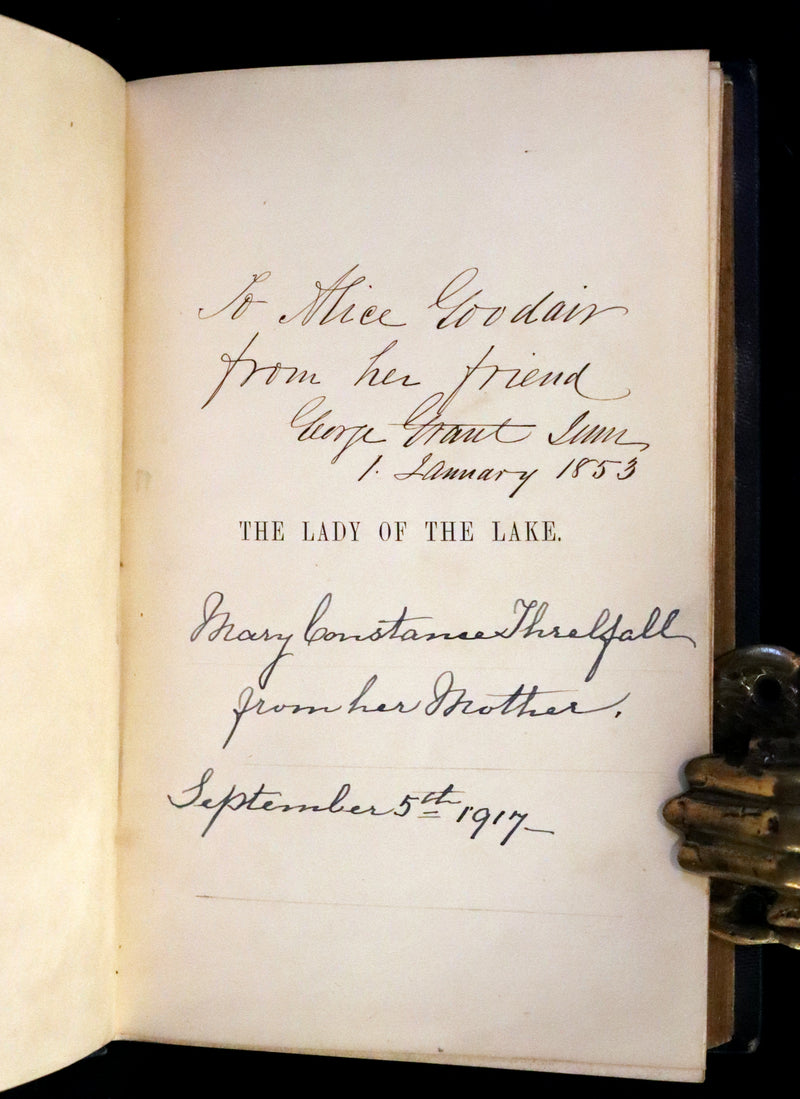 To Alice Goodair
from her friend
George Grant Junr
1. January 1853
THE LADY OF THE LAKE.
Mary Constance Threlfall
from her Mother.
September 5th 1917